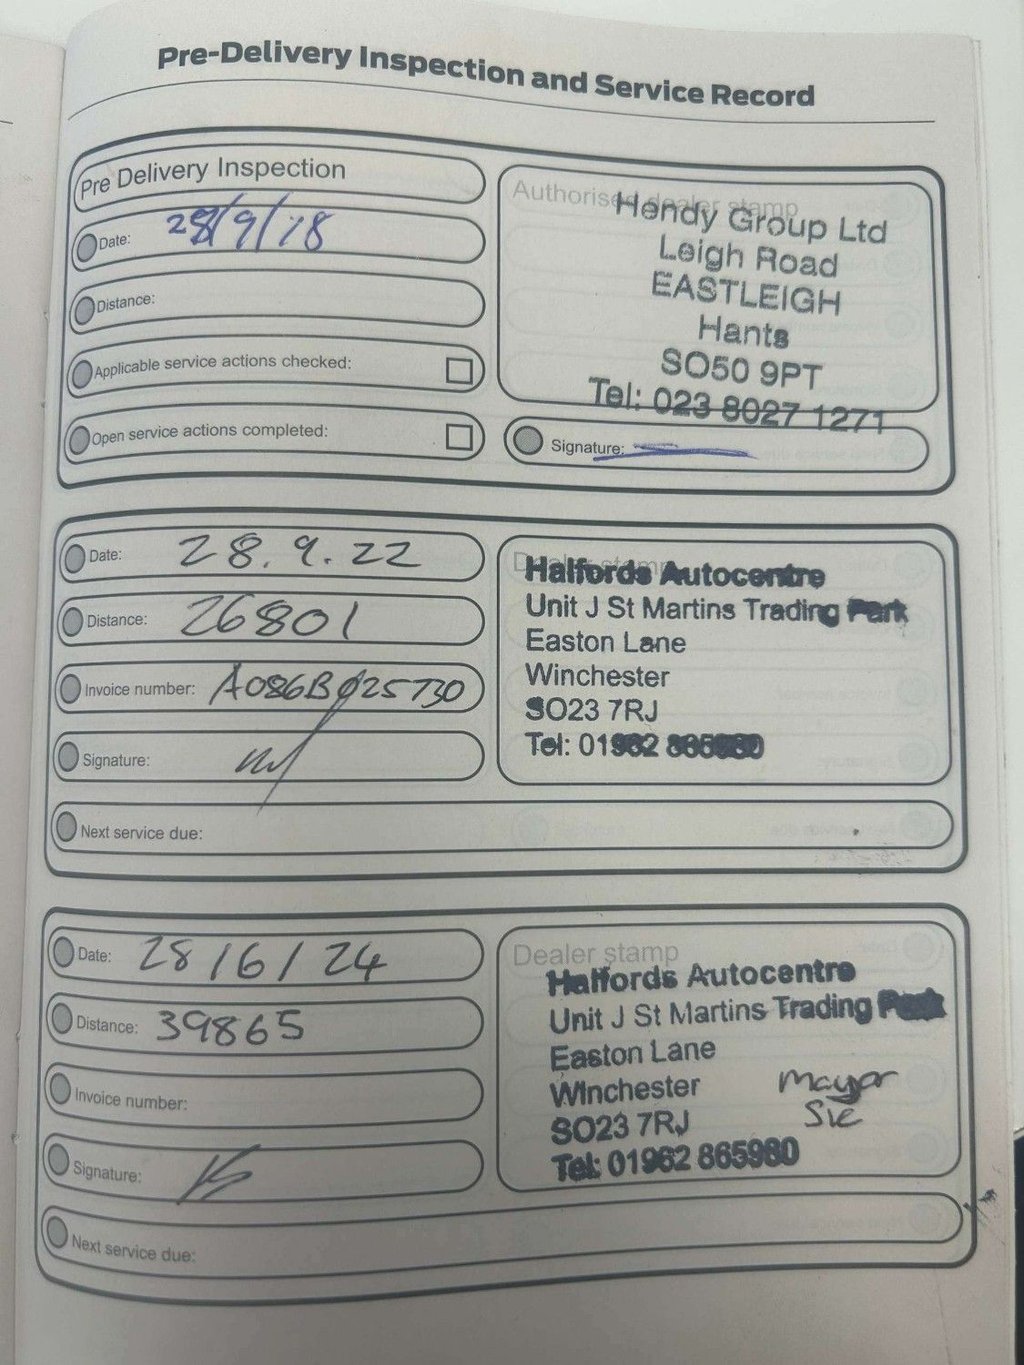 Pre-Delivery Inspection and Service Record
Pre Delivery Inspection
Date: 28/9/18
Distance:
Applicable service actions checked:
Open service actions completed:
Authorised dealer stamp
Hendy Group Ltd
Leigh Road
EASTLEIGH
Hants
SO50 9PT
Tel: 023 8027 1271
Signature:
Date: 28.9.22
Distance: 26801
Invoice number: A086B025730
Signature:
Dealer stamp
Halfords Autocentre
Unit J St Martins Trading Park
Easton Lane
Winchester
SO23 7RJ
Tel: 01962 865980
Next service due:
Date: 28/6/24
Distance: 39865
Invoice number:
Signature:
Dealer stamp
Halfords Autocentre
Unit J St Martins Trading Park
Easton Lane
Winchester
SO23 7RJ
Tel: 01962 865980
Mayor
Sie
Next service due: